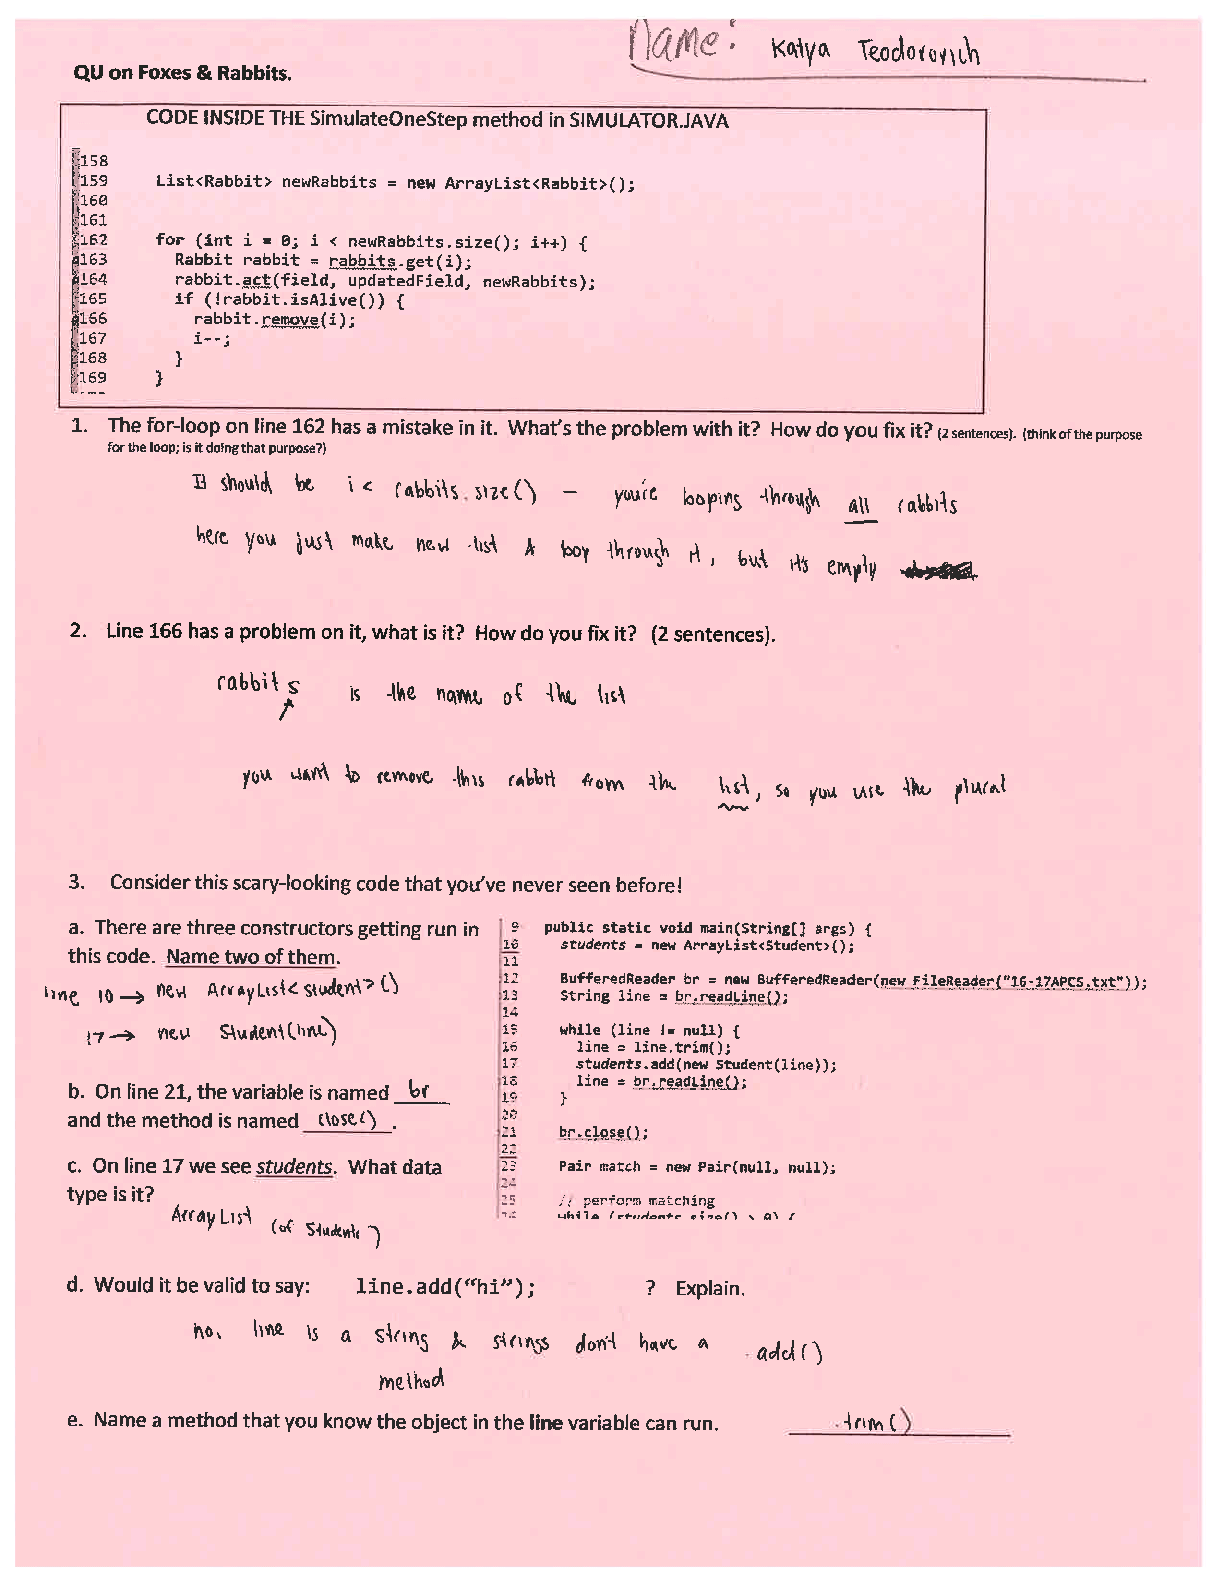 Name: Katya Teodorovich
QU on Foxes & Rabbits.
CODE INSIDE THE SimulateOneStep method in SIMULATOR.JAVA
158
159 List<Rabbit> newRabbits = new ArrayList<Rabbit>();
160
161
162 for (int i = 0; i < newRabbits.size(); i++) {
163 Rabbit rabbit = rabbits.get(i);
164 rabbit.act(field, updatedField, newRabbits);
165 if (!rabbit.isAlive()) {
166 rabbit.remove(i);
167 i--;
168 }
169 }
1. The for-loop on line 162 has a mistake in it. What's the problem with it? How do you fix it? (2 sentences). (think of the purpose
for the loop; is it doing that purpose?)
It should be i < rabbits.size() – you're looping through all rabbits
here you just make new list & loop through it, but it's empty
2. Line 166 has a problem on it, what is it? How do you fix it? (2 sentences).
rabbits is the name of the list
you want to remove this rabbit from the list, so you use the plural
3. Consider this scary-looking code that you've never seen before!
a. There are three constructors getting run in
this code. Name two of them.
line 10 → new ArrayList<Student>()
17 → new Student(line)
b. On line 21, the variable is named br
and the method is named close().
c. On line 17 we see students. What data
type is it?
ArrayList (of Students)
9 public static void main(String[] args) {
10 students = new ArrayList<Student>();
11
12 BufferedReader br = new BufferedReader(new FileReader("16-17APCS.txt"));
13 String line = br.readLine();
14
15 while (line != null) {
16 line = line.trim();
17 students.add(new Student(line));
18 line = br.readLine();
19 }
20
21 br.close();
22
23 Pair match = new Pair(null, null);
24
25 // perform matching
while (students.size() > 0) {
d. Would it be valid to say: line.add("hi"); ? Explain.
no. line is a string & strings don't have a .add()
method
e. Name a method that you know the object in the line variable can run. .trim()